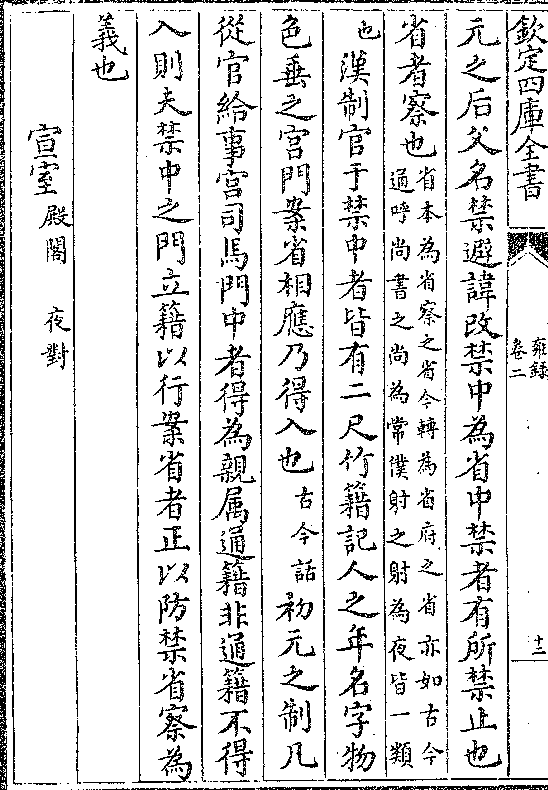 欽定四庫全書
雍録
卷二
十二
元之后父名禁避諱改禁中為省中禁者有所禁止也
省者察也省本為省察之省今轉為省府之省亦如古今
通呼尚書之尚為常僕射之射為夜皆一類
也漢制官于禁中者皆有二尺竹籍記人之年名字物
色垂之宫門案省相應乃得入也古今話初元之制凡
從官給事宫司馬門中者得為親属通籍非通籍不得
入則夫禁中之門立籍以行案省者正以防禁省察為
義也
宣室殿閣 夜對